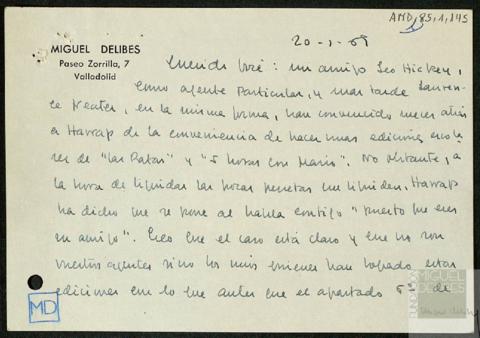 AMD, 85, 1, 145
MIGUEL DELIBES
Paseo Zorrilla, 7
Valladolid
20-1-69
Querido José: un amigo Leo Hickey,
como agente particular, y mas tarde Lauren-
ce Keates, en la misma forma, han convencido meses atrás
a Harrap de la conveniencia de hacer unas ediciones escola
res de "Las Ratas" y "5 horas con Mario". No obstante, a
la hora de liquidar las pocas pesetas que liquiden, Harrap
ha dicho que se pone al habla contigo "puesto que eres
su amigo". Creo que el caso está claro y que no son
vuestros agentes sino los mios quienes han logrado estas
ediciones con lo que antes que el apartado 5º de
MD
FUNDACIÓN
MIGUEL
DELIBES